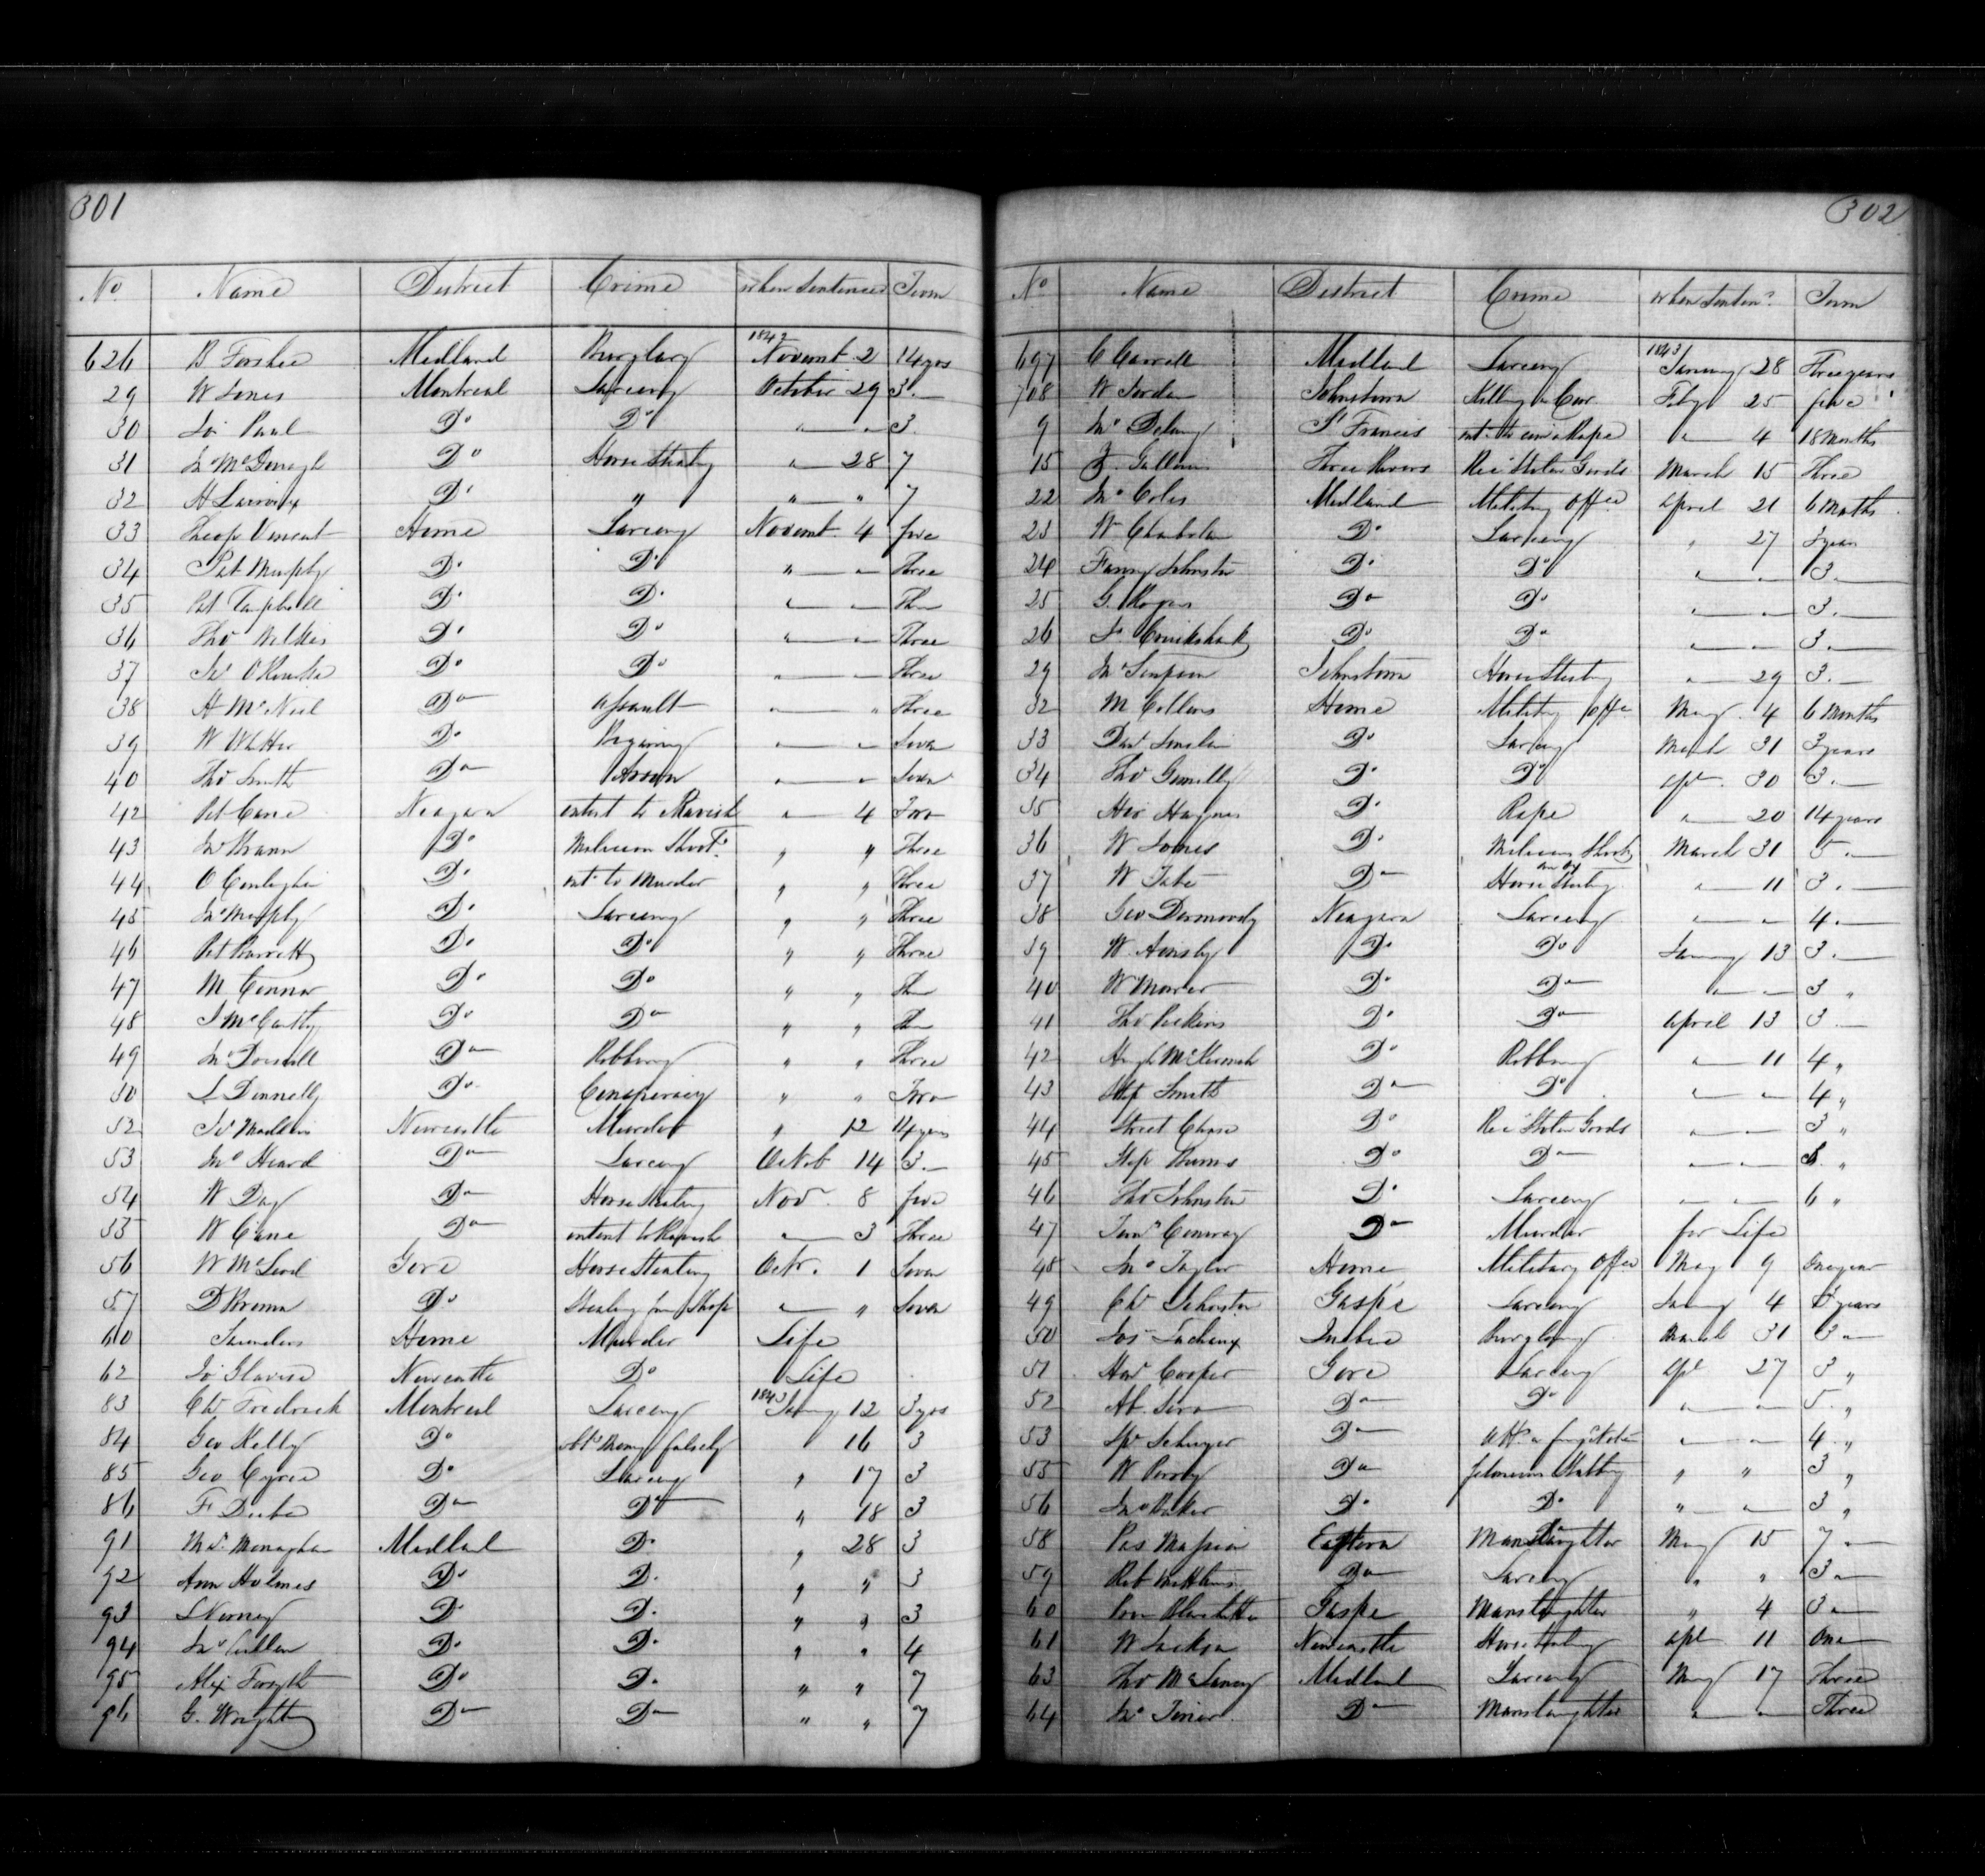 301
No Name District Crime when Sentenced Term
626 B Forshee Midland Burglary 1842 Novemt 2 14 yrs
29 W Jones Montreal Larceny October 29 3.—
30 Paul Do Do " — " 3.
31 Jno McDonagh Do Horse Stealing " — 28 7
32 H Do " " — " 7
33 Theop Vincent Home Larceny Novemt. 4 five
34 Pat Murphy Do Do " — " Three
35 Pat Do Do " — " Three
36 Thos Wilkes Do Do " — " Three
37 Do Do " — " Three
38 A McNeil Do assault " — " Three
39 W Do Bigamy " — " Seven
40 Thos Smith Do Arson " — " Seven
42 Pat Cane Niagara intent to Ravish " — 4 Two
43 Jno Do Malicious Shoot. " " Three
44 O Do int. to Murder " " Three
45 Jno Murphy Do Larceny " " Three
46 Pat Barrett Do Do " " Three
47 M Connor Do Do " " Three
48 J McCarthy Do Do " " Three
49 Jno Do Robbery " " Three
50 S Donnelly Do Conspiracy " " Two
52 Newcastle Murder " 12 14 years
53 Jno Heard Do Larceny Octob 14 3.—
54 W Day Do Horse Stealing Nov. 8 five
55 W Cane Do intent to Ravish " — 3 Three
56 W McLeod Gore Horse Stealing Octr. 1 Seven
57 D Brown Do Stealing from Shop " — " Seven
60 Saunders Home Murder Life
62 Newcastle Do Life
83 Chs Frederick Montreal Larceny 1843 Jany 12 3 yrs
84 Geo Kelly Do obt. Money falsely " 16 3
85 Geo Do Larceny " 17 3
86 F Do Do " 18 3
91 Monaghan Midland Do " 28 3
92 Ann Holmes Do Do " " 3
93 Do Do " " 3
94 Jno Cullen Do Do " " 4
95 Alex Forsyth Do Do " " 7
96 G. Wright Do Do " " 7
302
No Name District Crime when Senten. Term
697 C Carroll Midland Larceny 1843 January 28 Three years
708 W Jordan Johnstown Killing a Cow Feby 25 five "
9 Jno Delany St Francis int. to com. a Rape " — 4 18 Months
15 Three Rivers Rec Stolen Goods March 15 Three
22 Jno Coles Midland Military Offce April 21 6 Months
23 W Do Larceny " 27 3 years
24 Fanny Johnston Do Do " — " 3.—
25 G. Rogers Do Do " — " 3.—
26 Js Cruikshank Do Do " — " 3.—
29 Jno Simpson Johnstown Horse Stealing " — 29 3.—
32 M Collins Home Military Offce May 4 6 Months
33 Do Larceny March 31 3 years
34 Thos Do Do Apl. 30 3.—
35 Do Rape " — 20 14 years
36 W Jones Do Malicious Shooting March 31 5 —
37 W Tate Do Horse Stealing " — 11 3.—
38 Geo Dermondy Niagara Larceny " — " 4.—
39 W Do Do January 13 3.—
40 W Do Do " — " 3 "
41 Thos Perkins Do Do April 13 3 —
42 Hugh Do Robbery " — 11 4 "
43 Smith Do Do " — " 4 "
44 Street Chase Do Rec Stolen Goods " — " 3 "
45 Step Burns Do Do " — " "
46 Thos Johnston Do Larceny " — " 6 "
47 Conway Do Murder for Life
48 Jno Taylor Home Military Offce May 9 One year
49 Chs Johnston Gaspé Larceny January 4 3 years
50 Quebec Burglary March 31 3 —
51 Cooper Gore Larceny Apl 27 3 "
52 Do Do " — " 5 "
53 Do " — " 4 "
55 W Do felonious Stabbing " " 3 "
56 Jno Baker Do Do " — " 3 "
58 Eastern Manslaughter May 15 7 —
59 Rob Do Larceny " " 3 —
60 Gaspe Manslaughter " 4 3 —
61 W Jackson Newcastle Horse Stealing Apl 11 One
63 Thos Midland Larceny May 17 Three
64 Jno Do Manslaughter " — " Three